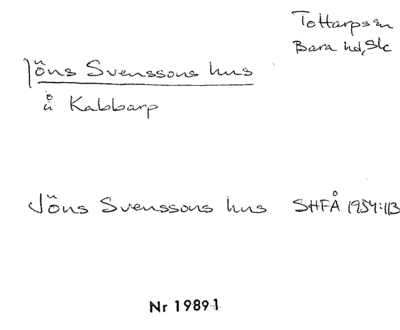 Tottarps sn
Bara hd, Sk
Jöns Svenssons hus
å Kabbarp
Jöns Svenssons hus SHFÅ 1954:113
Nr 19891